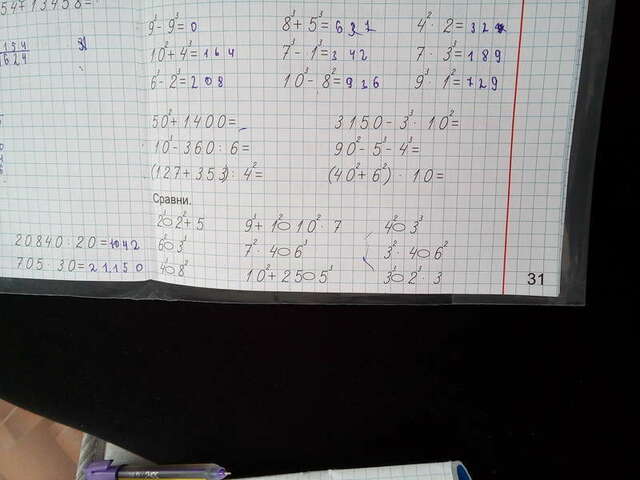 9³ - 9³ = 0 8³ + 5³ = 637 4² · 2 = 32
10² + 4³ = 164 7³ - 1³ = 342 7 · 3³ = 189
6³ - 2³ = 208 10³ - 8² = 936 9³ · 1² = 729
50² + 1400 = 3150 - 3³ · 10² =
10³ - 360 : 6 = 90² - 5³ - 4³ =
(127 + 353) : 4² = (40² + 6²) · 10 =
Сравни.
2³ ○ 2² + 5 9³ + 1 ○ 10² · 7 4² ○ 3³
6³ ○ 3³ 7² · 4 ○ 6³ 3² · 4 ○ 6²
4³ ○ 8² 10² + 25 ○ 5³ 3³ ○ 2³ · 3
20840 : 20 = 1042
705 · 30 = 21150
31